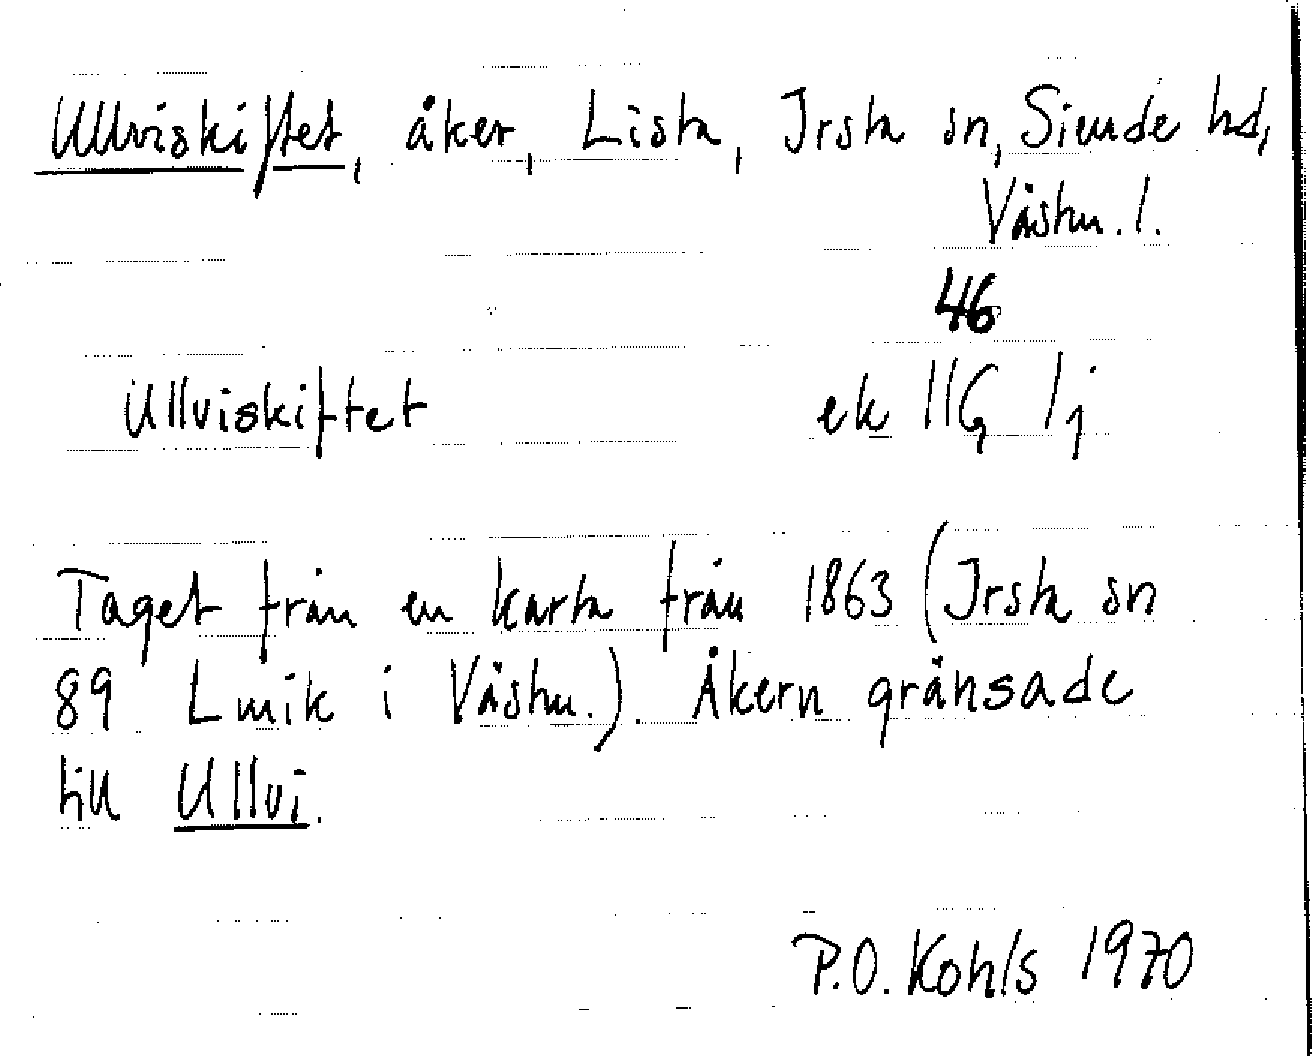 Ullviskiftet, åker, Lista, Irsta sn, Siende hd,
Västm. l.
46
Ullviskiftet ek 11G 1j
Taget från en karta från 1863 (Irsta sn
89 Lmik i Västm.). Åkern gränsade
till Ullvi.
P.O. Kohls 1970